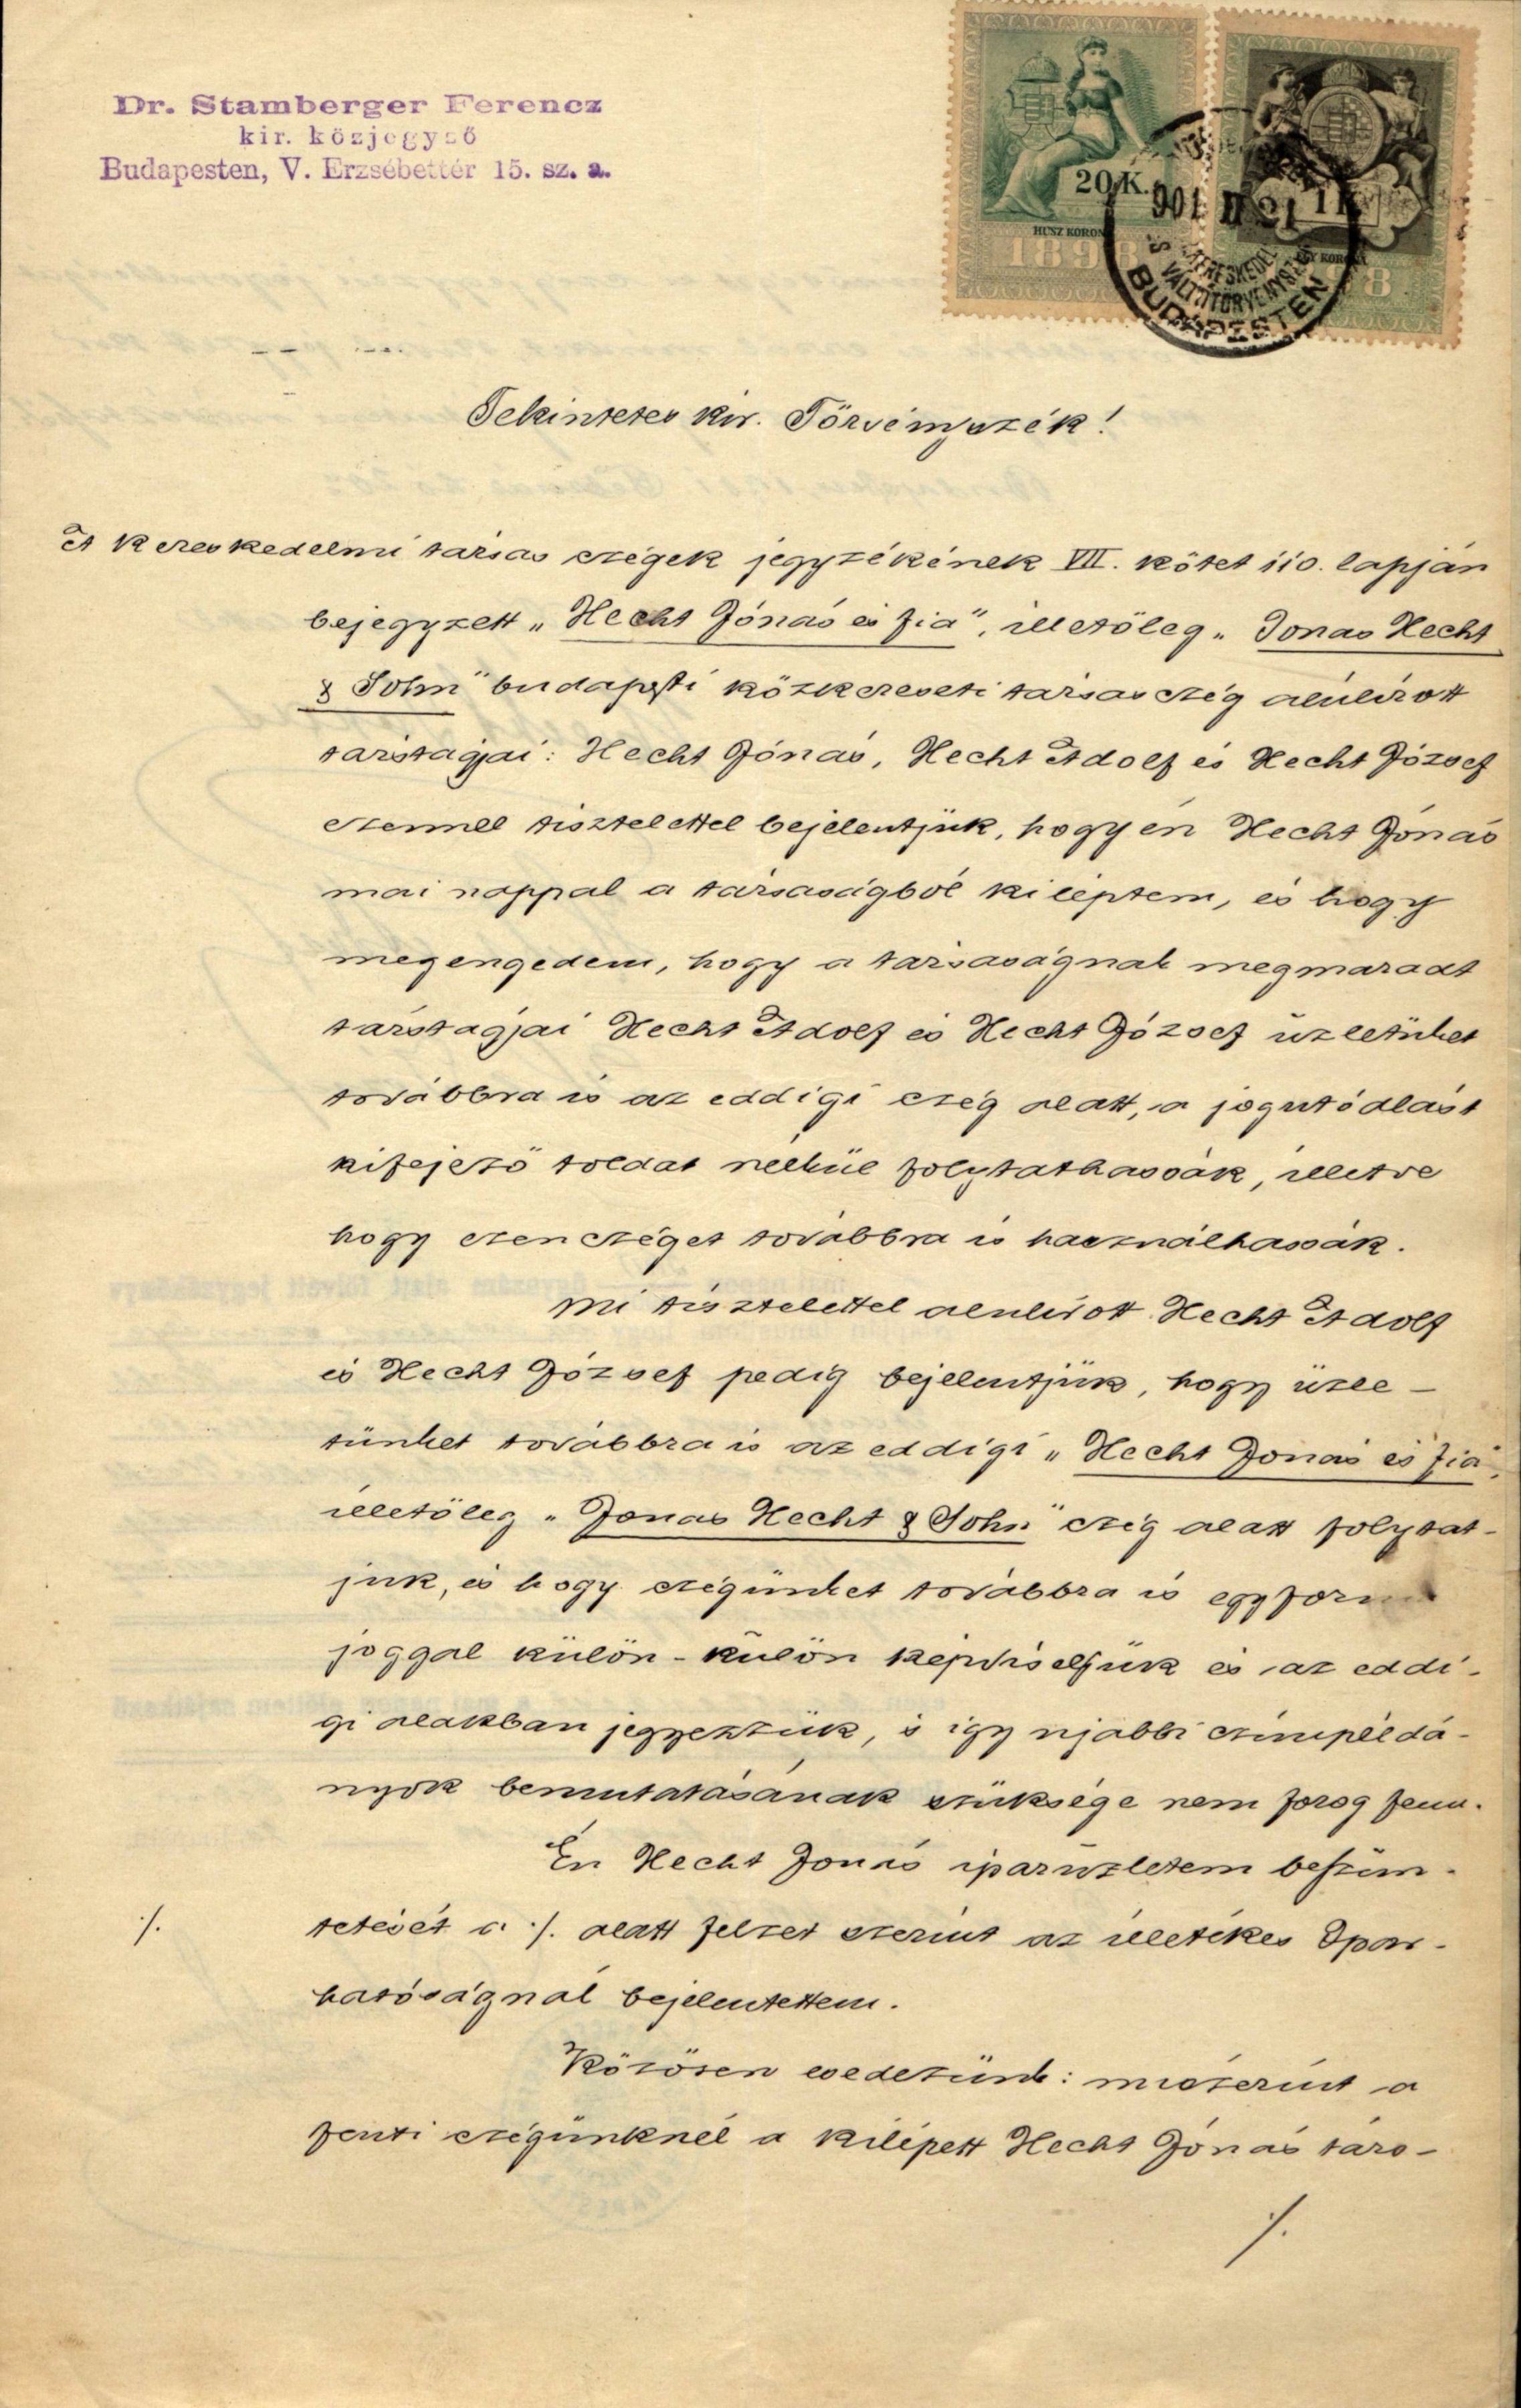 Dr. Stamberger Ferencz
kir. közjegyző
Budapesten, V. Erzsébettér 15. sz. a.
20 K.
HUSZ KORONA
1898
1 K
EGY KORONA
901 II 21
KERESKEDEL
S VÁLTÓTÖRVÉNYSZÉK
BUDAPESTEN
Tekintetes kir. Törvényszék!
A kereskedelmi társas czégek jegyzékének VII. kötet 110. lapján
bejegyzett „Hecht Jónás és fia", illetőleg „Jonas Hecht
& Sohn" budapesti közkereseti társas czég alulirott
társtagjai: Hecht Jónás, Hecht Adolf és Hecht József
ezennel tisztelettel bejelentjük, hogy én Hecht Jónás
mai nappal a társaságból kiléptem, és hogy
megengedem, hogy a társaságnak megmaradt
társtagjai Hecht Adolf és Hecht József üzletüket
továbbra is az eddigi czég alatt, a jogutódlást
kifejező toldat nélkül folytathassák, illetve
hogy ezen czéget továbbra is használhassák.
Mi tisztelettel alulirott Hecht Adolf
és Hecht József pedig bejelentjük, hogy üzle-
tünket továbbra is az eddigi „Hecht Jonás és fia",
illetőleg „Jonas Hecht & Sohn" czég alatt folytat-
juk, és hogy czégünket továbbra is egyforma
joggal külön-külön képviseljük és az eddi-
gi alakban jegyezzük, s igy ujabbi czimpéldá-
nyok bemutatásának szüksége nem forog fenn.
Én Hecht Jonás iparüzletem beszün-
tetését a ·/. alatt felzet szerint az illetékes Ipar-
·/.
hatóságnál bejelentettem.
Közösen esedezünk: miszerint a
fenti czégünknél a kilépett Hecht Jónás társ-
·/.